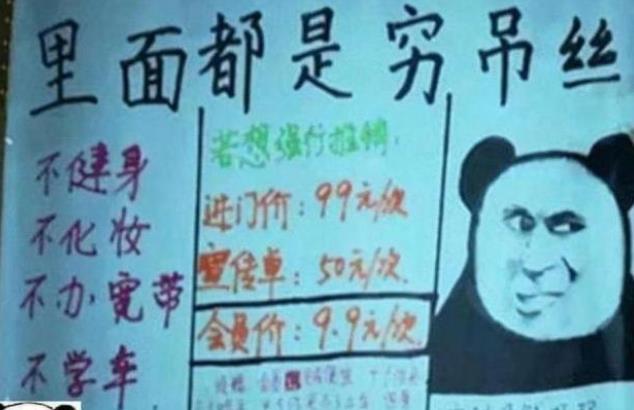 里面都是穷吊丝
不健身
不化妆
不办宽带
不学车
若想强行推销:
进门价:99元/次
宣传单:50元/次
会员价:9.9元/次